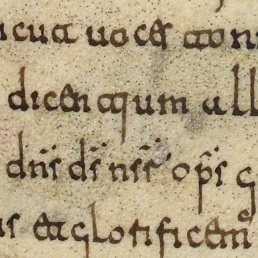 icut uoces toni
dicentium all
dn̄s d̄s ns̄r op̄s
us et glorificemꝰ